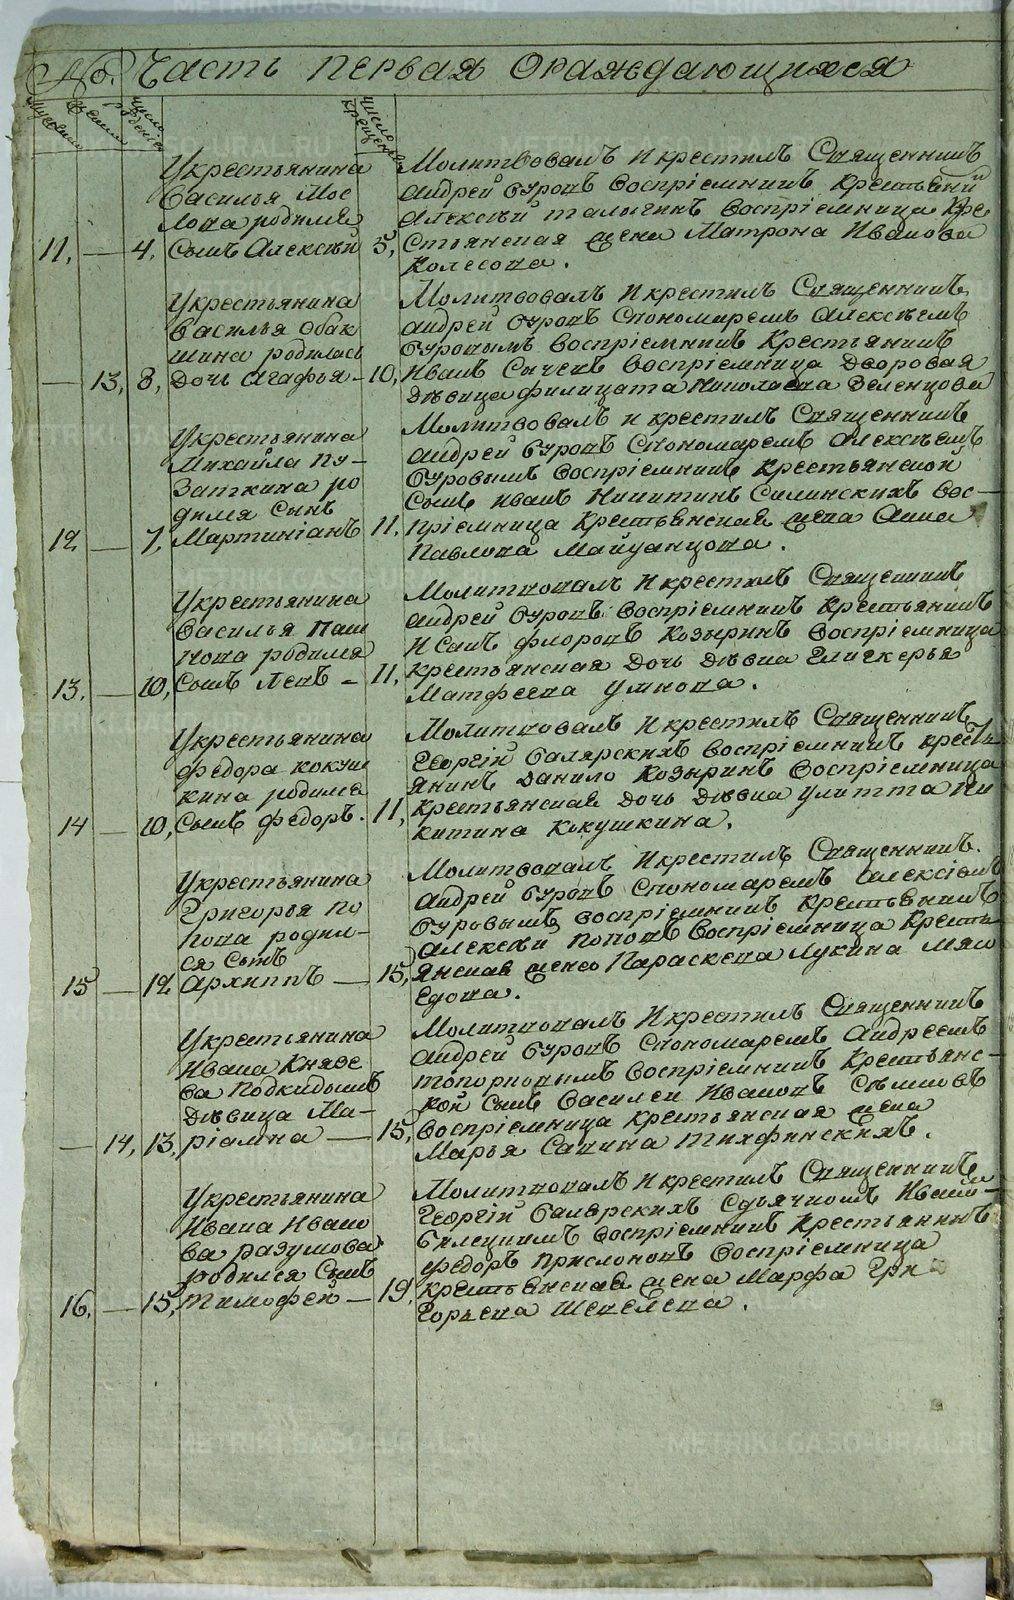 №. Часть первая ораждающихся
Мужеска
Женска
число рожденія
число крещенія
У крестьянина
Василья Мос
лова родился
11, — 4, сынъ Алексѣй 5,
Молитвовалъ и крестилъ Священникъ
Андрей Буровъ воспріемникъ крестьянинъ
Алексѣй Талыгинъ воспріемница кре
стьянская жена Матрона Иванова
Колесова.
У крестьянина
Василья Обак
шина родилась
— 13, 8, дочь Агафья — 10,
Молитвовалъ и крестилъ Священникъ
Андрей Буровъ с пономаремъ Алексѣемъ
Буровымъ воспріемникъ крестьянинъ
Иванъ Сычевъ воспріемница дворовая
дѣвица Филицата Николаева Зеленцова
У крестьянина
Михайла Пу–
заткина ро
дился сынъ
12 — 7, Мартиніанъ 11,
Молитвовалъ и крестилъ Священникъ
Андрей Буровъ с пономаремъ Алексѣемъ
Буровымъ воспріемникъ крестьянской
сынъ Иванъ Никитинъ Силинскихъ вос–
пріемница крестьянская жена Анна
Павлова Майданцова.
У крестьянина
Василья Паш
кова родился
13. — 10, сынъ Левъ – 11,
Молитвовалъ и крестилъ Священникъ
Андрей Буровъ воспріемникъ крестьянинъ
Исакъ Флоровъ Козыринъ воспріемница
крестьянская дочь дѣвка Гликерья
Матфеева Умнова.
У крестьянина
Федора Кокуш
кина родился
14 — 10, сынъ Федоръ. 11,
Молитвовалъ и крестилъ Священникъ
Георгій Балярскихъ воспріемникъ кресть–
янинъ Данило Козыринъ воспріемница
крестьянская дочь дѣвка Улитта Ни
китина Кокушкина.
У крестьянина
Григорья По
пова родил–
ся сынъ
15 — 12 Архиппъ — 15,
Молитвовалъ и крестилъ Священникъ.
Андрей Буровъ с пономаремъ Алексіемъ
Буровымъ воспріемникъ крестьянинъ
Алексѣй Поповъ воспріемница кресть–
янская жена Параскева Лукина Мяс
едова.
У крестьянина
Ивана Князе
ва подкидышъ
дѣвица Ма–
— 14, 13, ріамна — 15,
Молитвовалъ и крестилъ Священникъ
Андрей Буровъ с пономаремъ Андреемъ
Топорковымъ воспріемникъ крестьянс–
кой сынъ Василей Ивановъ
воспріемница крестьянская жена
Марья Савина Тихфинскихъ.
У крестьянина
Ивана Ивано
ва Разумова
родился сынъ
16, — 15, Тимофей — 19,
Молитвовалъ и крестилъ Священникъ
Георгій Балярскихъ с дьячкомъ Иваном–
Билецкимъ воспріемникъ крестьянинъ
Федоръ Прислоновъ воспріемница
крестьянская жена Марфа Гри
горьева Шевелева.
METRIKI.GASO-URAL.RU